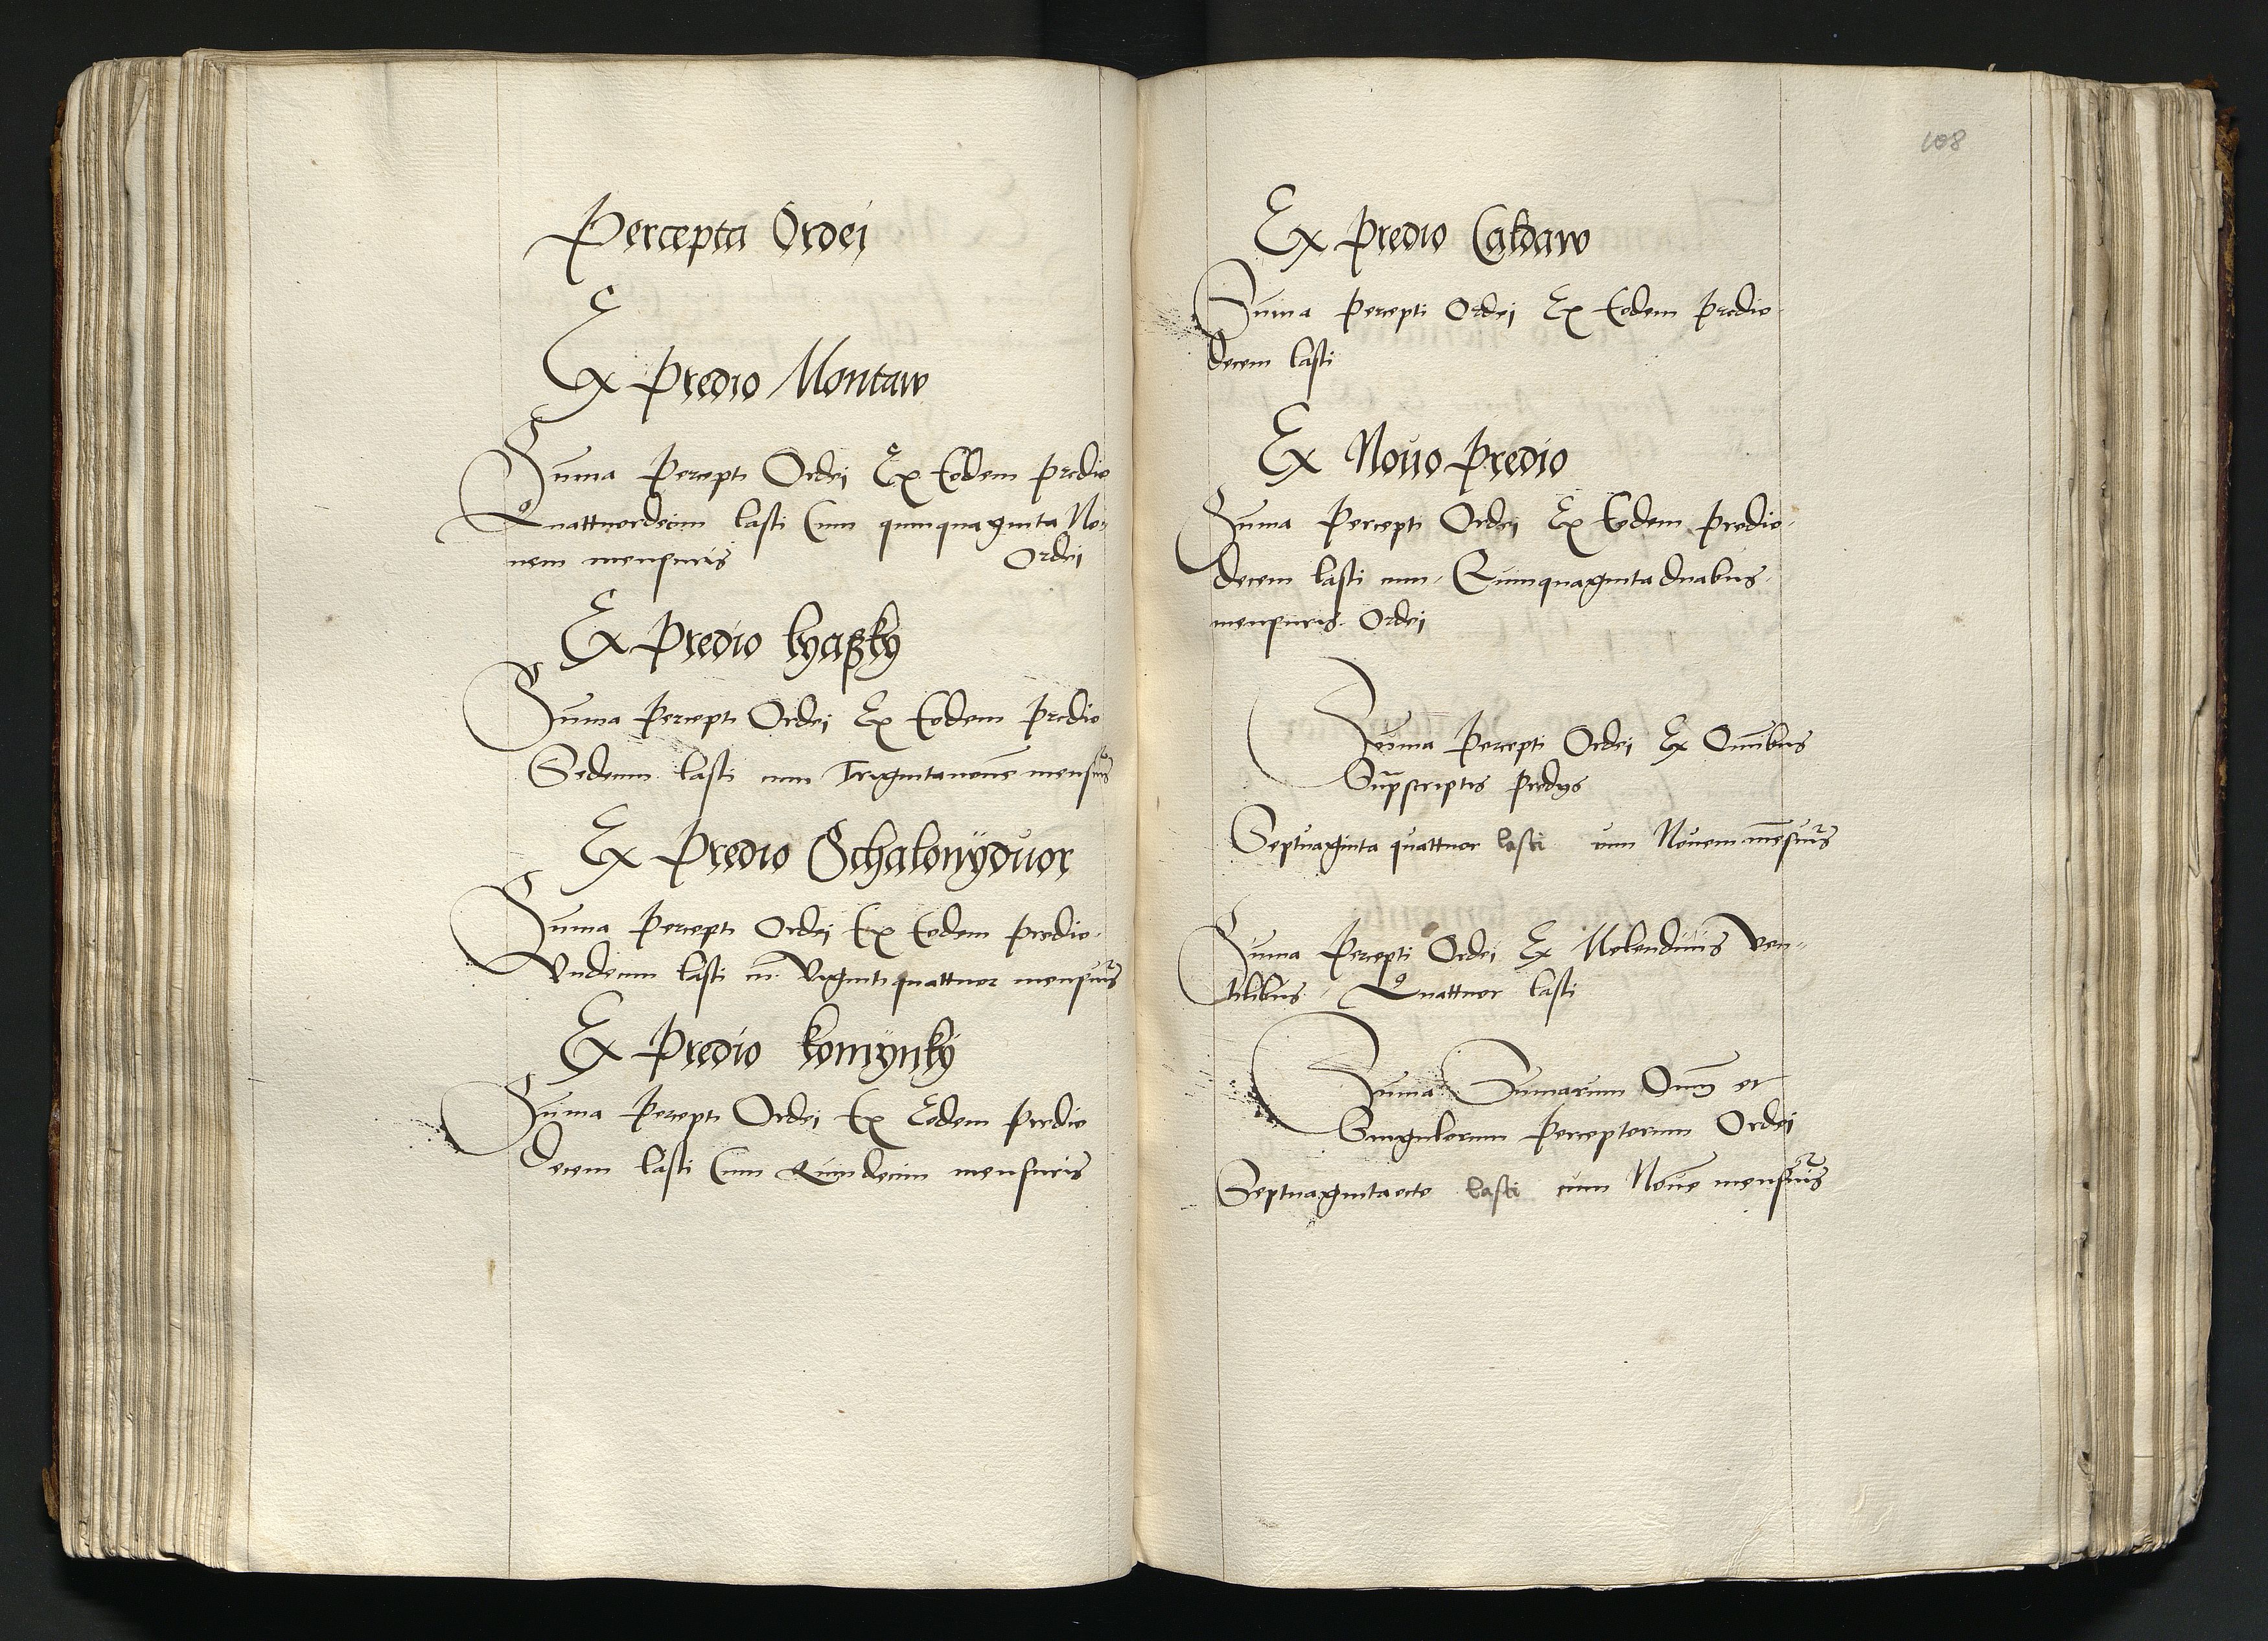 Percepta Ordei
Ex Predio Montaw
Suma Percepti Ordei Ex Eodem predio
Quattuordecim lasti Cum quinquaginta No-
nem mensuris Ordei
Ex Predio lyaßky
Suma Percepti Ordei Ex Eodem predio
Sedecim lasti cum Trigintanoue mensuris
Ex Predio Schalonÿduor
Suma Percepti Ordei Ex Eodem predio.
Vndecim lasti cu Vigintiquattuor mensuris
Ex Predio komÿnkÿ
Suma Percepti Ordei Ex Eodem predio
Decem lasti Cum Quindecim mensuris
108
Ex Predio Caldaw
Suma Percepti Ordei Ex Eodem predio.
decem lasti
Ex Nouo Predio
Suma Percepti Ordei Ex Eodem Predio.
decem lasti cum. Quinquaginta duabus.
mensuris. Ordei
Suma Percepti Ordei Ex Omibus
Supscriptis predys
Septuaginta quattuor lasti cum Nouem mesuris
Suma Percepti Ordei Ex Molendinis Ven-
tilibus. Quattuor lasti
Suma Sumarum Oim et
Singulorum Perceptorum Ordei
Septuagintaocto lasti cum Noue mensuris